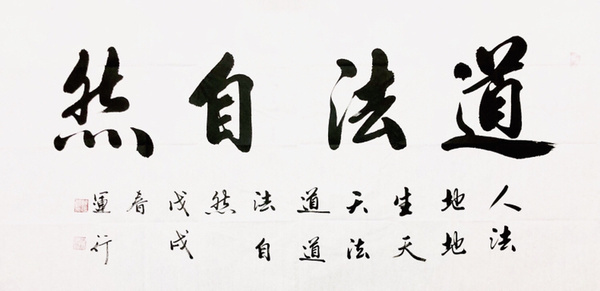 道法自然
人法
地地
生天
天法
道道
法自
然
戊戌
春
運行